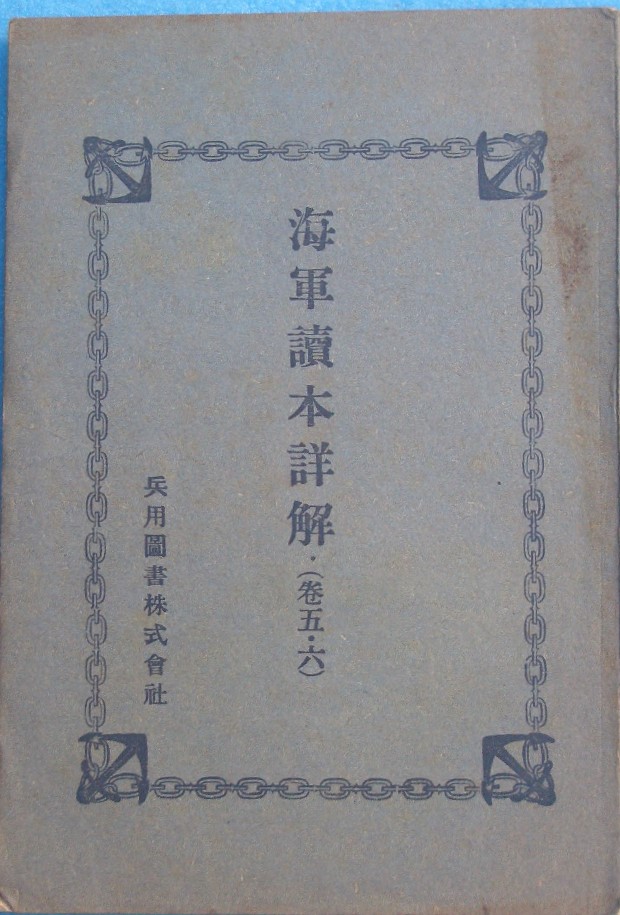 海軍讀本詳解・(卷五・六)
兵用圖書株式會社